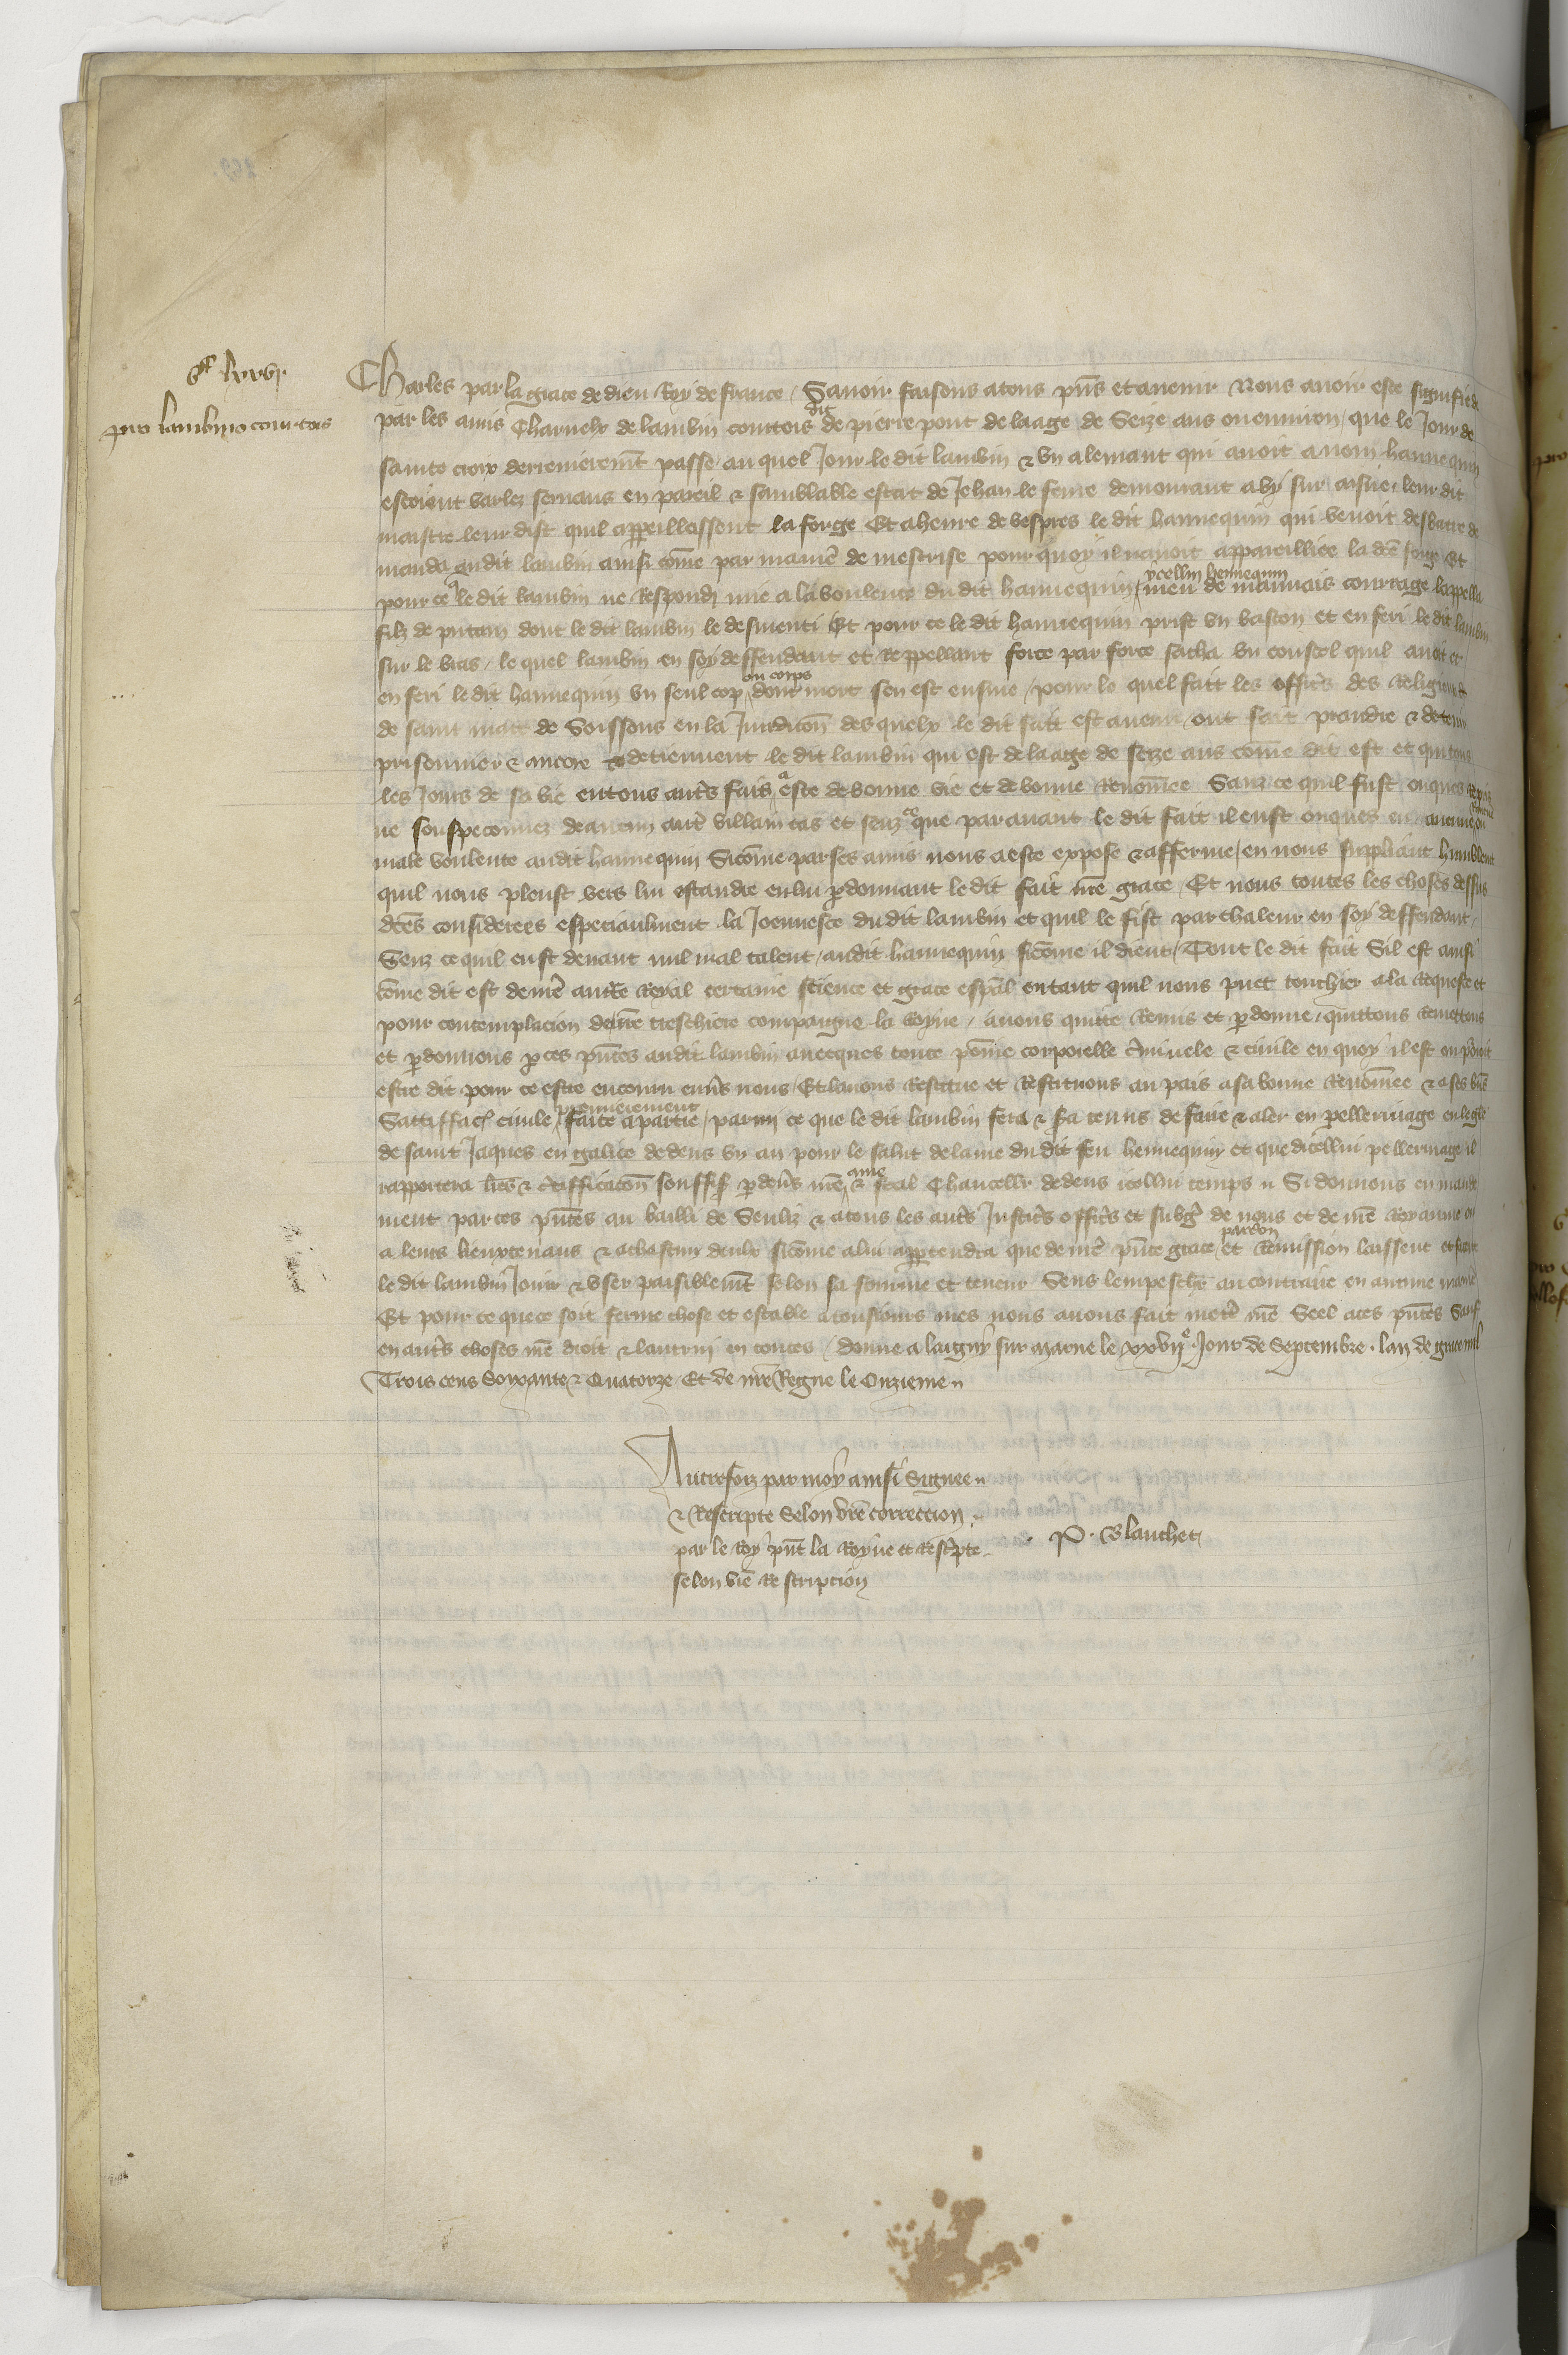 vᶜ lxxvj.
pro lambino courtois
Charles par la grace de dieu Roy de france / Savoir faisons a tous pns̄ et avenir Nous avoir este signifie de
par les amis Charnelx de lambin courtois dit de pierre pont de laage de Seize ans ou environ / que le Jour de
sainte croix derrenieremt̄ passe / au quel Jour le dit lambin & un alemant qui avoit a nom hannequin
estoient varlez servans en pareil & samblable estat de Jehan le fevre demourant a vy sur aisne / leur dit
maistre leur dist quil appeillassent la forge Et a heure de vespres le dit hannequin qui venoit desbatre de
manda audit lambin ainsi com̄e par manie͛ de mestrise pour quoy il navoit appareilliee la dc̄e forge Et
pour ce q̄ le dit lambin ne Respondi mie a la voulente du dit hannequin / ycellui hennequin meu de mauvais courrage lappella
filz de putain dont le dit lambin le desmenti Et pour ce le dit hannequin prist un baston et en feri le dit lambin
sur le bras / le quel lambin en soy deffendant et Reppellant force par force sacha un coustel quil avoit et
en feri le dit hannequin un seul cop ou corps dont mort sen est ensuie / pour le quel fait les offic͛s des Religieux
de saint marc de Soissons en la Juridicōn desquelx le dit fait est avenu / ont fait prandre & detenir
prisonnier & ancore detiennent le dit lambin qui est de laage de seize ans com̄e dit est et qui tous
les Jours de sa vie en tous aut͛s fais a este de bonne vie et de bonne Renom̄ee Sanz ce quil fust onques
ne souspeconnez de aucun aut͛ villain cas et senz ce que par avant le dit fait il eust onques eu aucune
male voulente audit hannequin Sicom̄e par ses amis nous a este expose & afferme / en nous suppliant humblent
quil nous pleust vers lui estandre en lui p̱donnant le dit fait nr̄e grace / Et nous toutes les choses dessus
dc̄es considerees especiaulment la Joennesce du dit lambin et quil le fist par chaleur en soy deffendant /
Senz ce quil eust devant nul mal talent / audit hannequin sicom̄e il dient / Tout le dit fait Sil est ainsi
com̄e dit est de nr̄e auct̄e Royal certaine science et grace esp̄al en tant quil nous puet touchier a la Requeste et
pour contemplacion de nr̄e treschiere compaigne la Royne / avons quitte Remis et p̱donne / quittons Remettons
et p̱donnons p̱ ces pn̄tes audit lambin avecques toute pōine corporelle c͛iminele & civile en quoy il est ou p͛roit
estre dit pour ce estre encouru env͛s nous / Et lavons Restitue et Restituons au pais a sa bonne Renom̄ee & a ses b͛ns
Sattiffacō civile premierement faite a partie / parmi ce que le dit lambin sera & sa tenus de faire & aler en pellerinage en legl̄e
de saint Jaques en galice dedens un an pour le salut de lame du dit feu hennequin et que dicellui pellerinage il
rapportera lr̄es & c͛tifficacōn souffis p̱ dev͛s nr̄e ame & feal Chancellr̄ dedens icellui temps // Si donnons en mande
ment par ces pn̄tes au bailli de Senliz & a tous les aut͛s Justic͛s offic͛s et subg͛ de nous et de nr̄e Royaume ou
a leurs lieuxtenans & a chascun deulx sicom̄e a lui app̱tendra que de nr̄e pn̄te grace pardon et Remission laissent et facent
le dit lambin Joir & user paisiblemt̄ selon sa forme et teneur Sens lempeschr̄ au contraire en aucune manie͛
Et pour ce que ce soit ferme chose et estable a tousiours mes nous avons fait mett͛ nr̄e Seel a ces pn̄tes Sauf
en aut͛s choses nr̄e droit & lautrui en toutes / donne a laigny sur marne le xxvijᵉ Jour de Septembre . lan de grace mil
Trois cens Soixante & Quatorze Et de nr̄e Regne le Onzieme //
Autresfoiz par moy ainsi Signee //
& Rescripte Selon vr̄e correccion .
par le Roy pn̄t la Royne et Resc͛pte
selon vr̄e Rescripcion
P. Blanchet